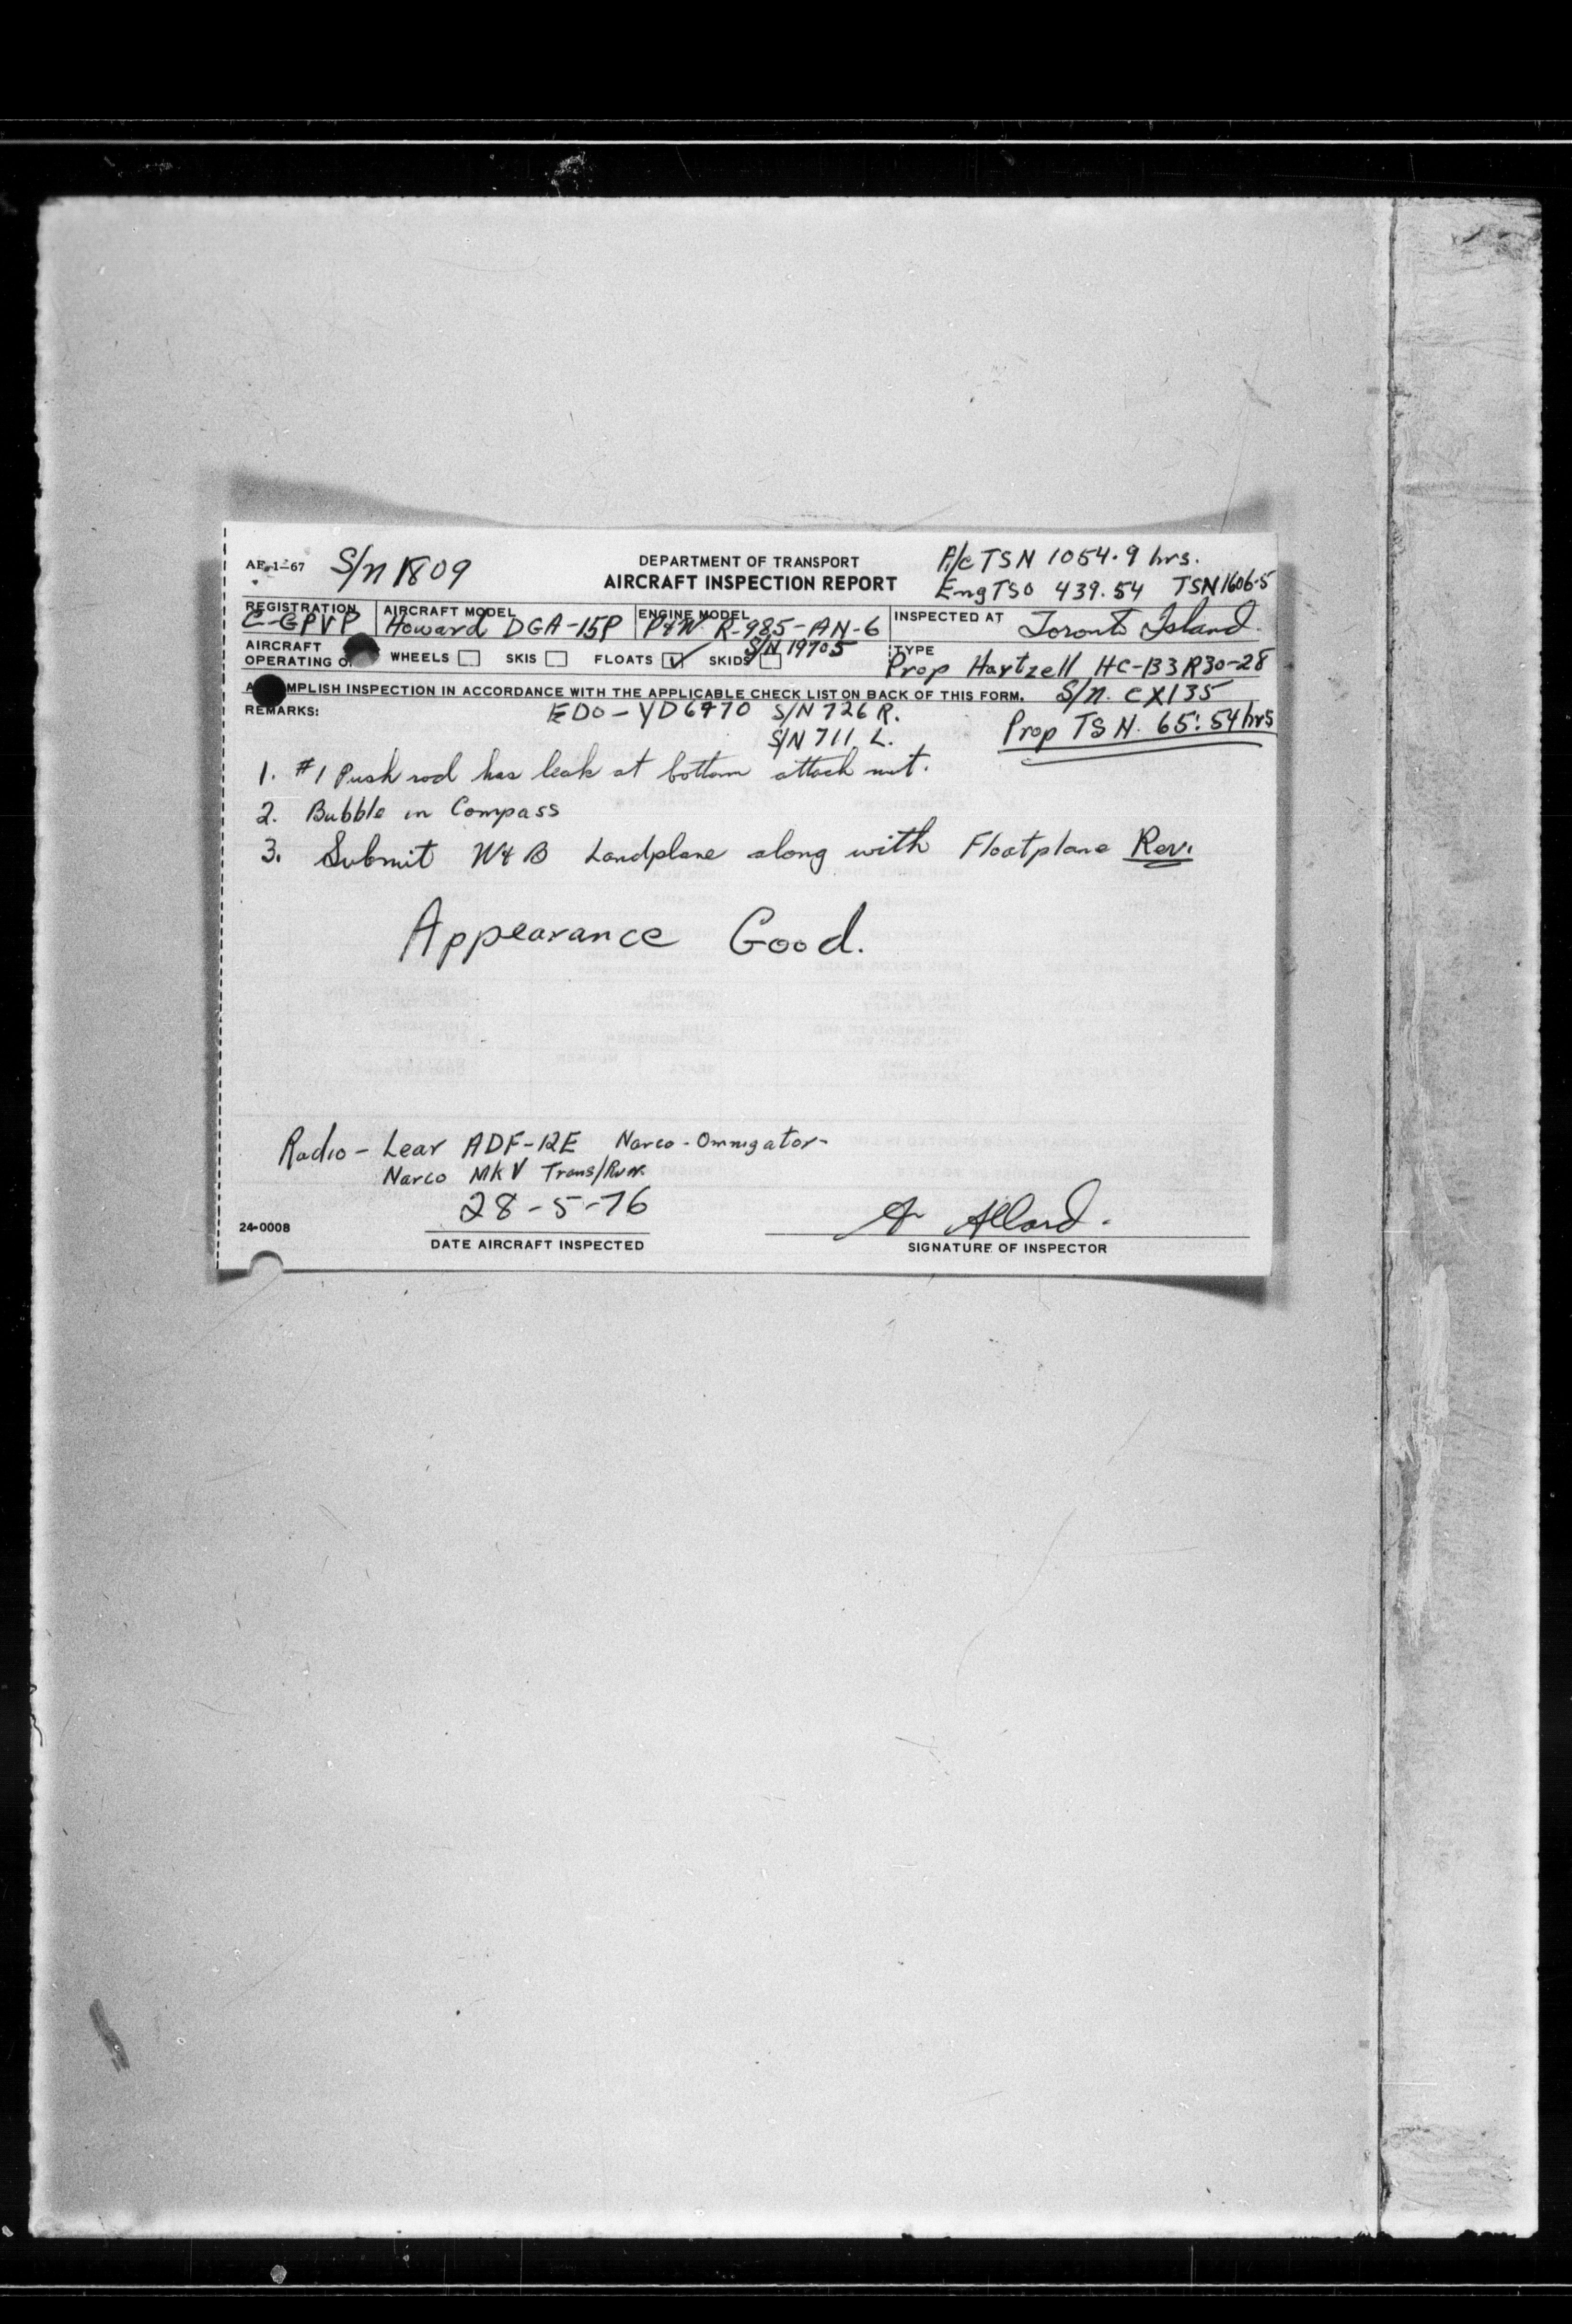 AE-1-67 S/n 1809 DEPARTMENT OF TRANSPORT A/c TSN 1054.9 hrs.
AIRCRAFT INSPECTION REPORT Eng TSO 439.54 TSN 1606.5
REGISTRATION AIRCRAFT MODEL ENGINE MODEL INSPECTED AT Toronto Island.
C-GPVP Howard DGA-15P P&W R-985-AN-6
S/N 19705
AIRCRAFT OPERATING O WHEELS SKIS FLOATS ✓ SKIDS TYPE
Prop Hartzell HC-B3R30-2E
A MPLISH INSPECTION IN ACCORDANCE WITH THE APPLICABLE CHECK LIST ON BACK OF THIS FORM. S/n. CX135
REMARKS: EDO-YD6470 S/N 726 R. Prop TSN. 65:54 hrs
S/N 711 L.
1. #1 Push rod has leak at bottom attach nut.
2. Bubble in Compass
3. Submit W&B Landplane along with Floatplane Rev.
Appearance Good.
Radio - Lear ADF-12E Narco - Omnigator -
Narco Mk V Trans/
28-5-76 A Allard.
24-0008 DATE AIRCRAFT INSPECTED SIGNATURE OF INSPECTOR